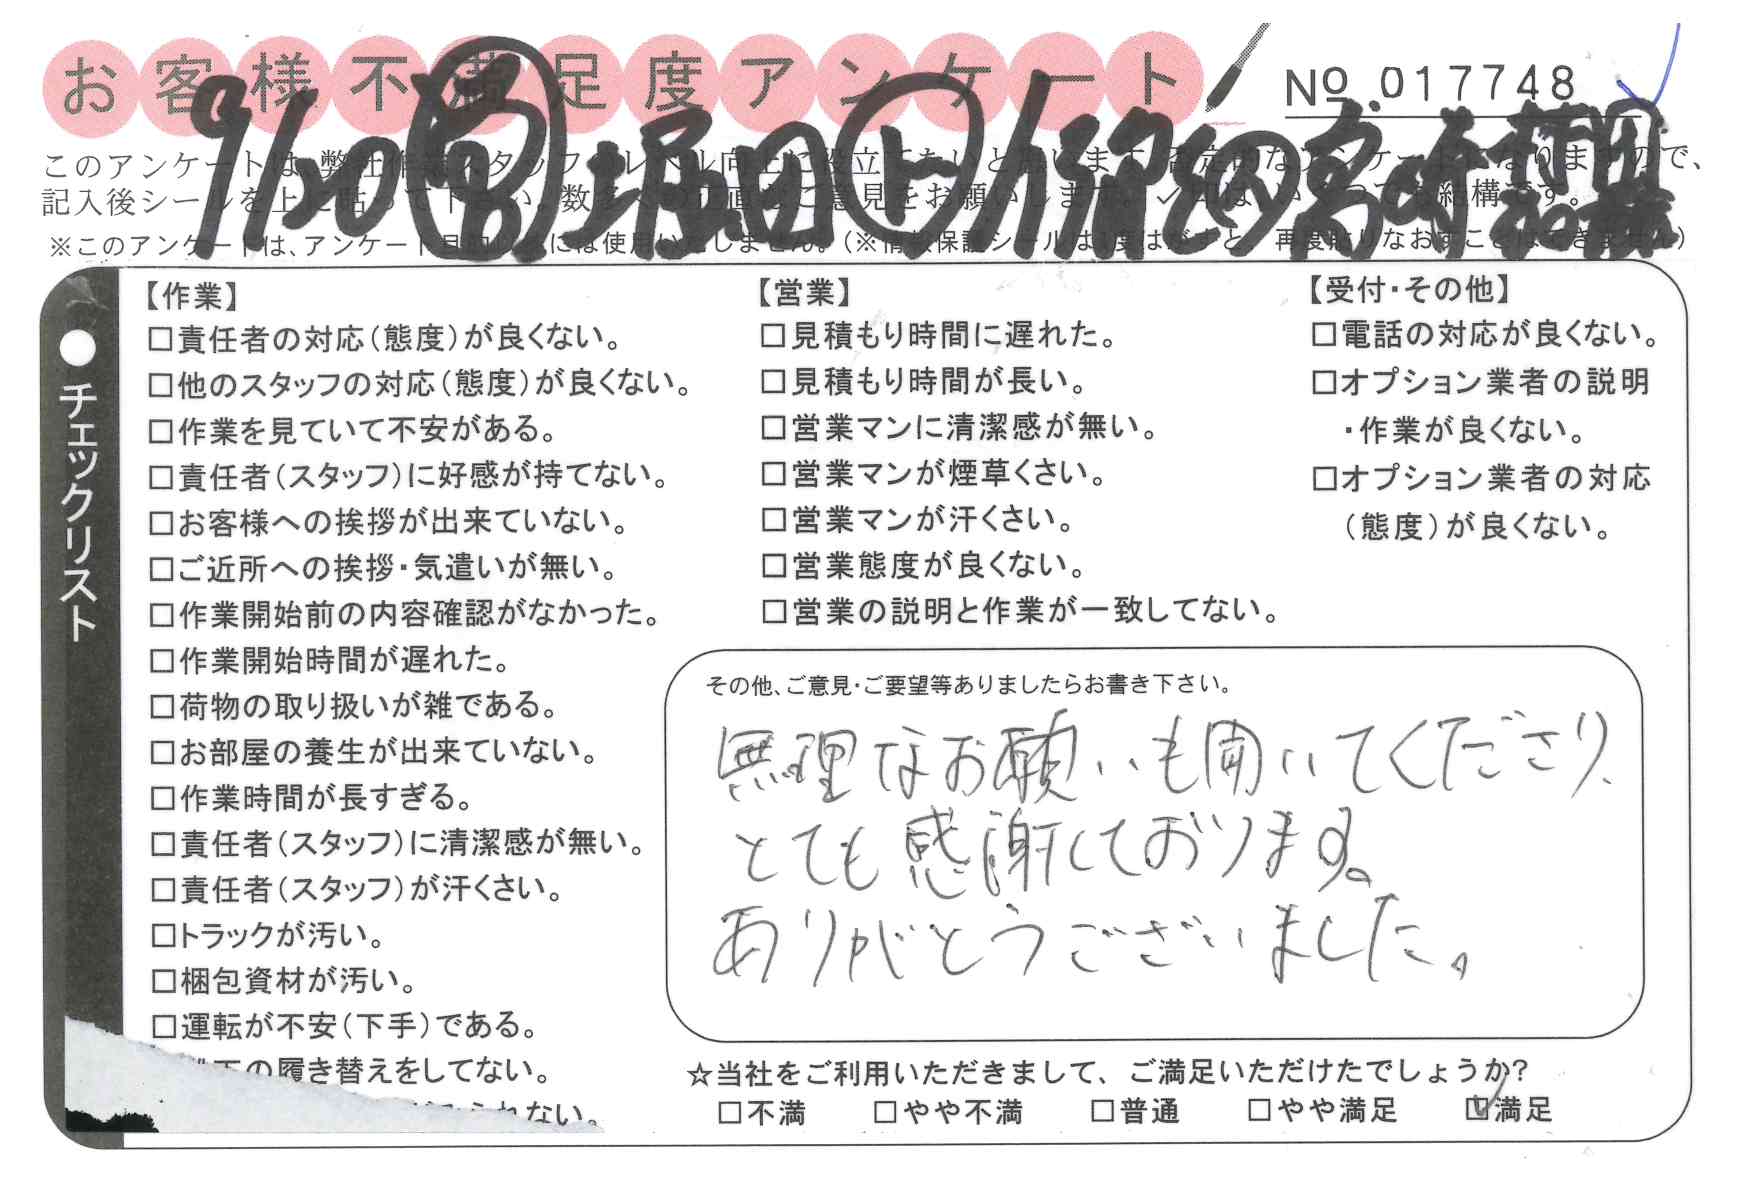 お客様不満足度アンケート
No 017748
9/20 堀田 ト 小神野
このアンケートは、弊社作業スタッフのレベル向上に役立てたいと思います。否定的なアンケートになりますので、
記入後シールを上に貼って下さい。数多くの正直なご意見をお願いします。✓印は、いくつでも結構です。
※このアンケートは、アンケート目的以外には使用いたしません。(※情報保証シールは1度はがすと、再度貼りなおすことはできません)
●チェックリスト
【作業】
□責任者の対応(態度)が良くない。
□他のスタッフの対応(態度)が良くない。
□作業を見ていて不安がある。
□責任者(スタッフ)に好感が持てない。
□お客様への挨拶が出来ていない。
□ご近所への挨拶・気遣いが無い。
□作業開始前の内容確認がなかった。
□作業開始時間が遅れた。
□荷物の取り扱いが雑である。
□お部屋の養生が出来ていない。
□作業時間が長すぎる。
□責任者(スタッフ)に清潔感が無い。
□責任者(スタッフ)が汗くさい。
□トラックが汚い。
□梱包資材が汚い。
□運転が不安(下手)である。
の履き替えをしてない。
れない。
【営業】
□見積もり時間に遅れた。
□見積もり時間が長い。
□営業マンに清潔感が無い。
□営業マンが煙草くさい。
□営業マンが汗くさい。
□営業態度が良くない。
□営業の説明と作業が一致してない。
【受付・その他】
□電話の対応が良くない。
□オプション業者の説明
・作業が良くない。
□オプション業者の対応
(態度)が良くない。
その他、ご意見・ご要望等ありましたらお書き下さい。
無理なお願いも聞いてくださり、
とても感謝しております。
ありがとうございました。
☆当社をご利用いただきまして、ご満足いただけたでしょうか?
□不満 □やや不満 □普通 □やや満足 ☑満足